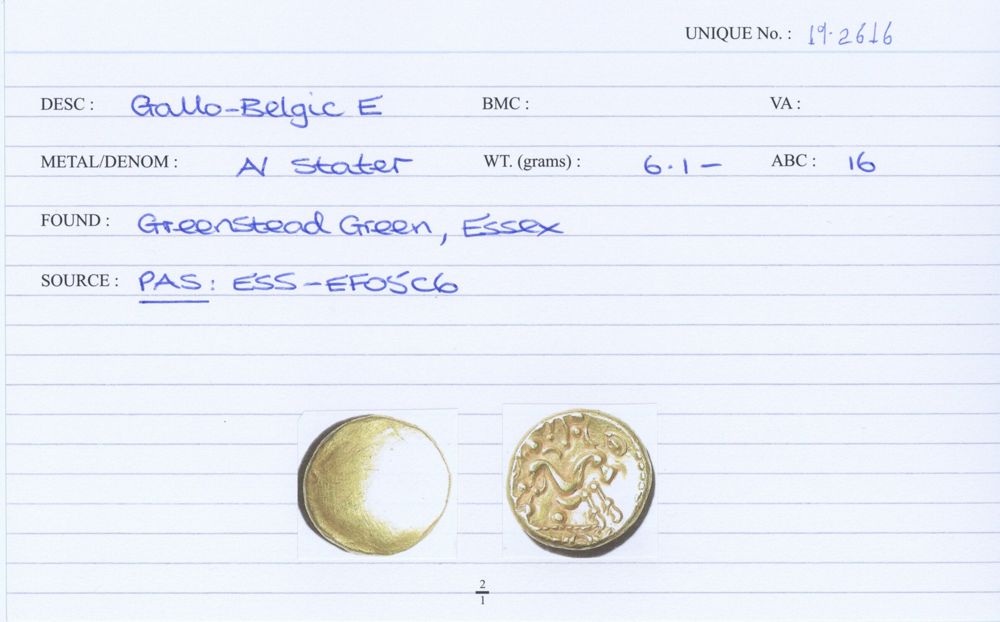 UNIQUE No. : 19.2616
DESC : Gallo-Belgic E BMC : VA :
METAL/DENOM : AV Stater WT. (grams) : 6.1 – ABC : 16
FOUND : Greenstead Green, Essex
SOURCE : PAS: ESS-EF05C6
2
1